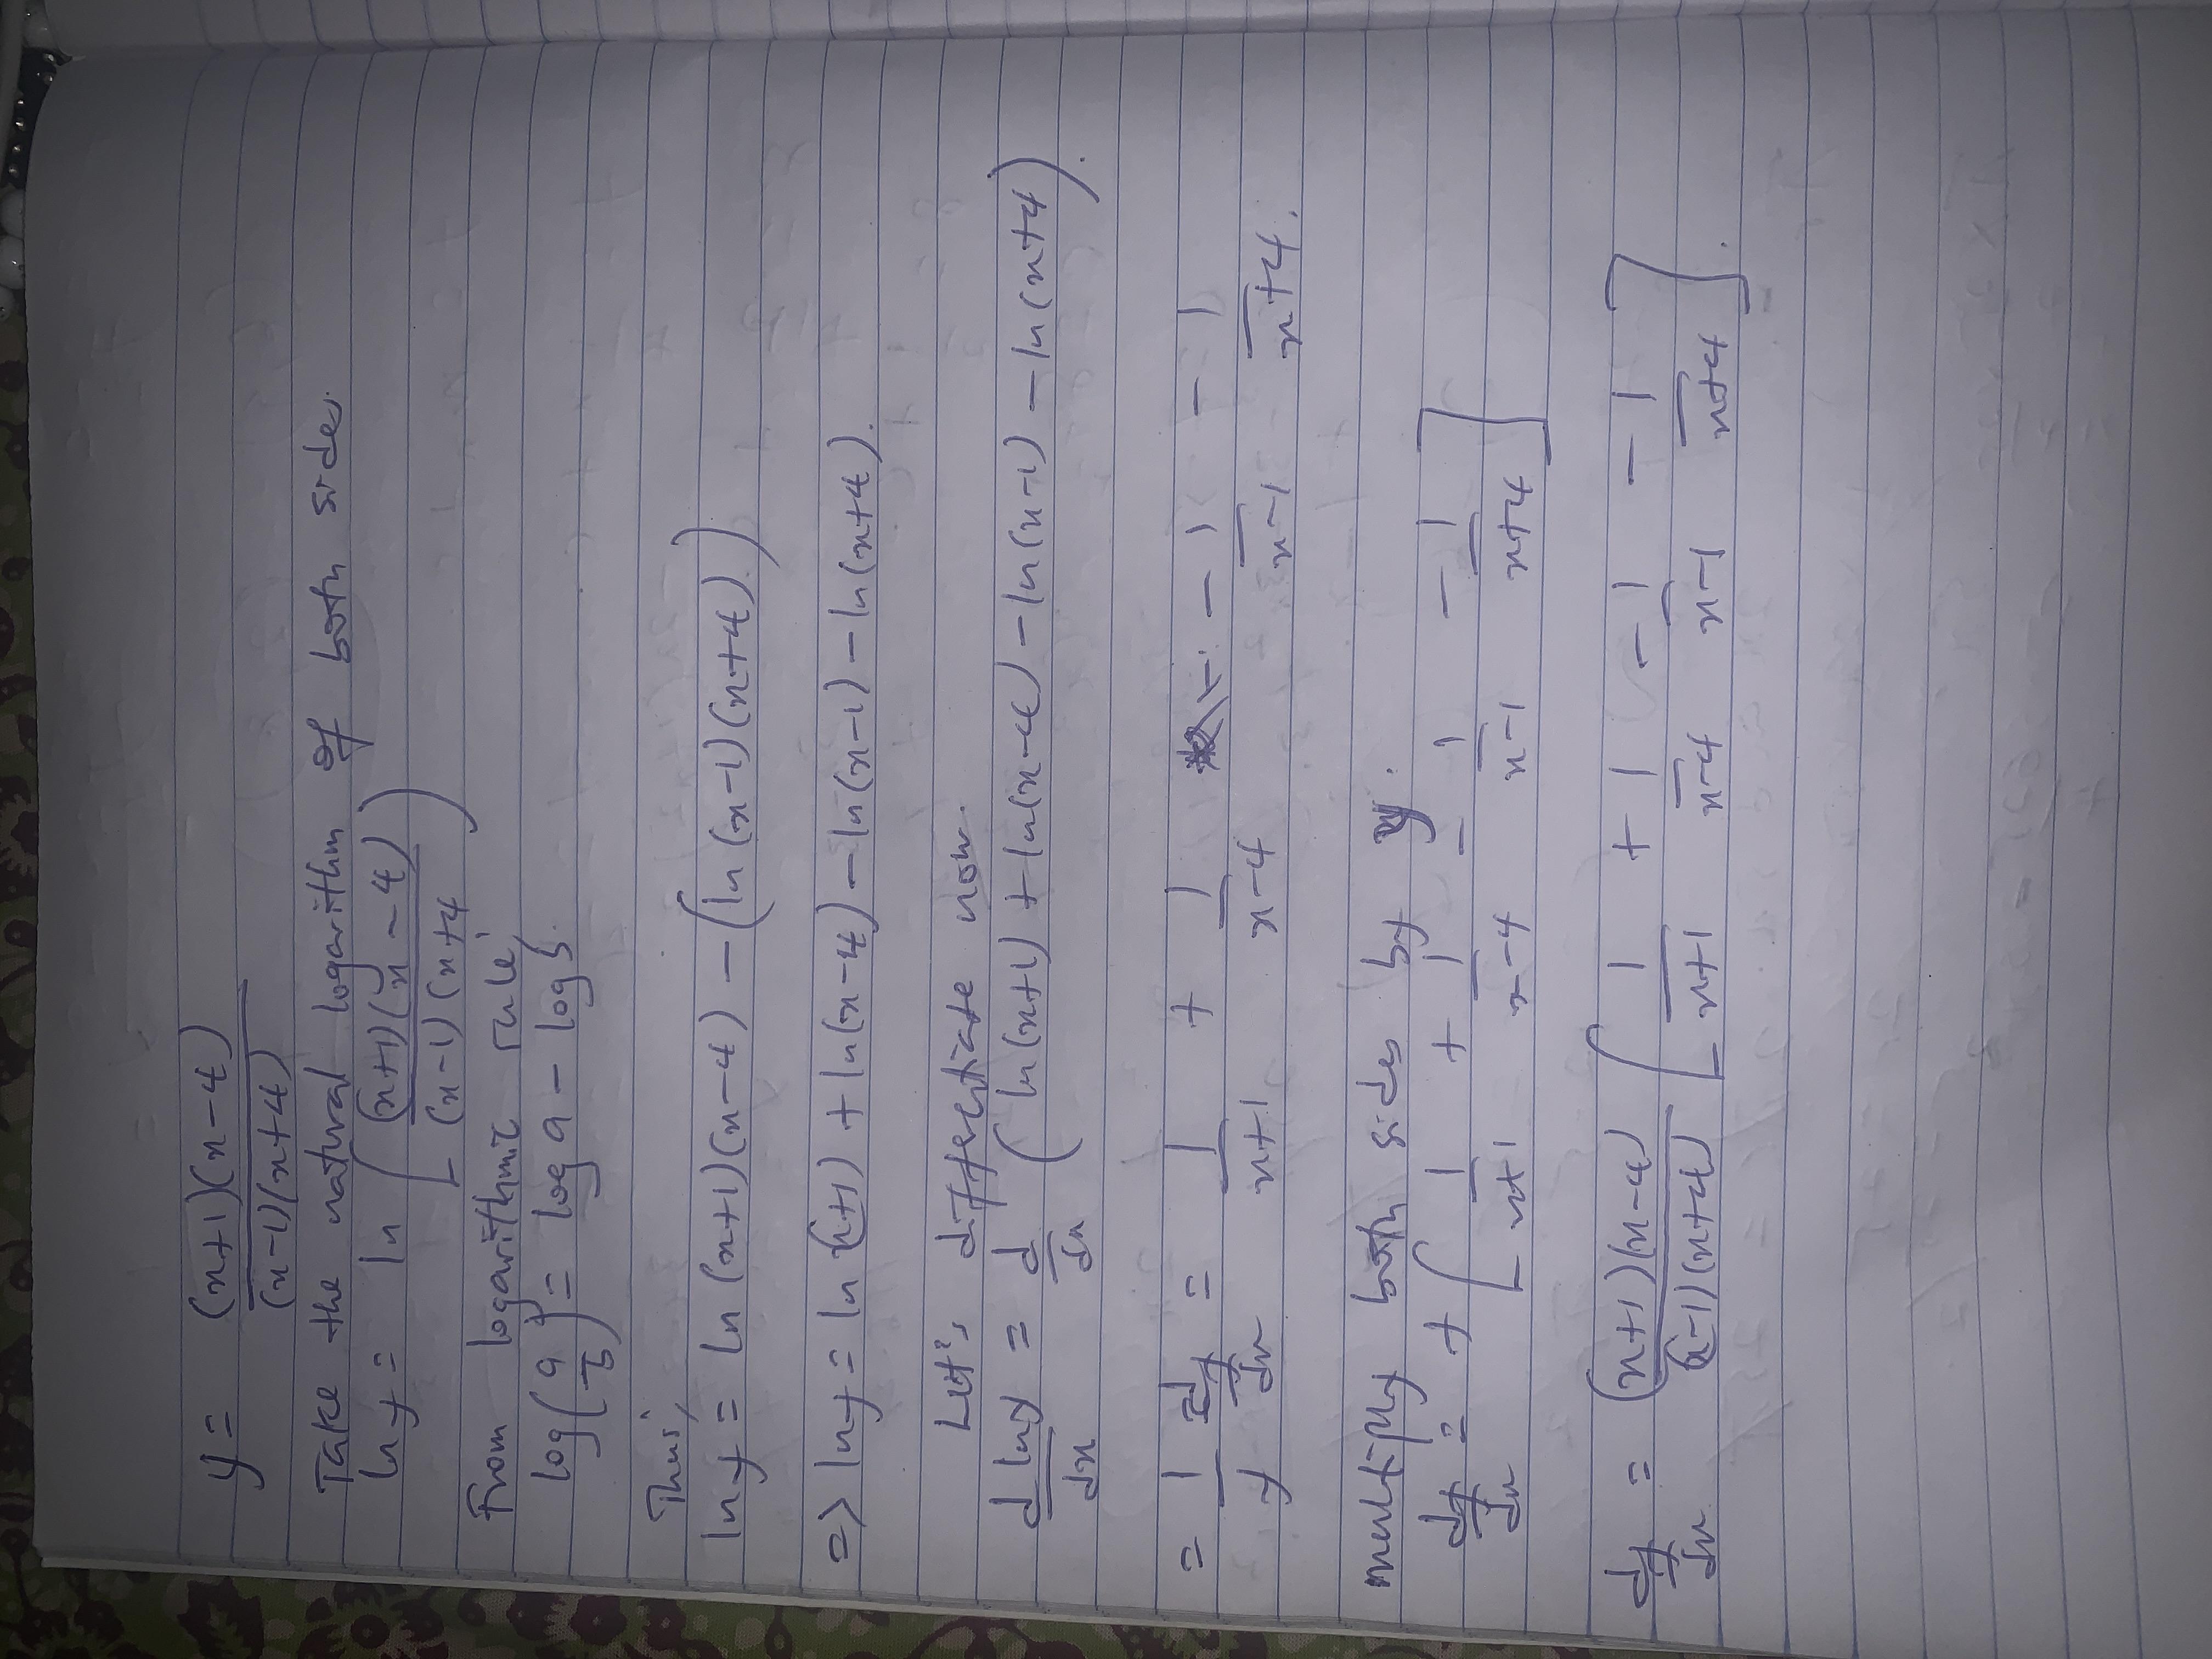 y = (x+1)(x-4)
(x-1)(x+4)
Take the natural logarithm of both sides.
ln y = ln [ (x+1)(x-4) )
(x-1)(x+4
From logarithmic rule,
log(a/b) = log a - log b.
Thus,
ln y = ln (x+1)(x-4) - (ln (x-1)(x+4))
=> ln y = ln (x+1) + ln(x-4) - ln(x-1) - ln(x+4).
Let's differentiate now.
d lny = d (ln(x+1) + ln(x-4) - ln(x-1) - ln(x+4)).
dx dx
= 1 dy = 1 + 1 - 1 - 1
y dx x+1 x-4 x-1 x+4.
multiply both sides by y.
dy = y [ 1 + 1 - 1 - 1 ]
dx x+1 x-4 x-1 x+4
dy = (x+1)(x-4) [ 1 + 1 - 1 - 1 ]
dx (x-1)(x+4) x+1 x-4 x-1 x+4 .